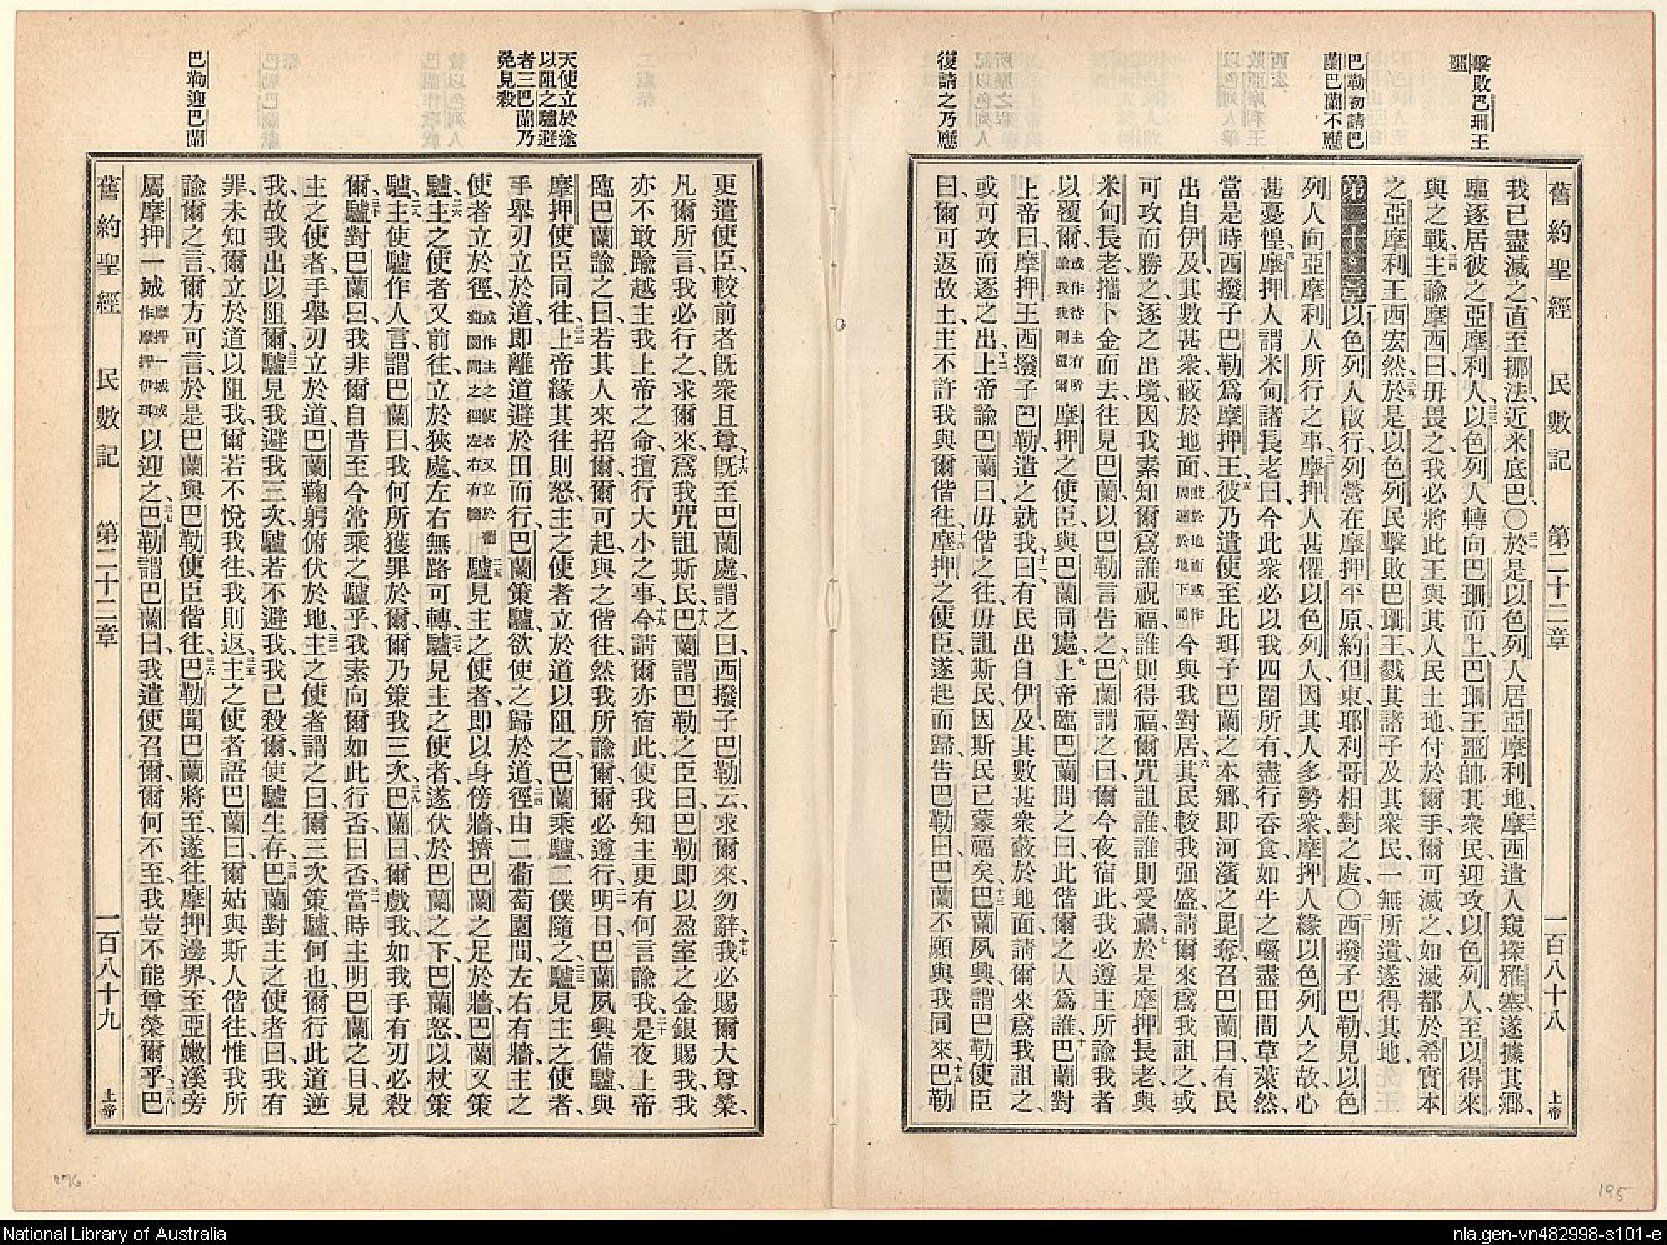 擊敗巴珊王
噩
巴勒初請巴
蘭巴蘭不應
復請之乃應
舊約聖經 民數記 第二十二章 一百八十八 上帝
我已盡滅之、直至挪法、近米底巴、〇三一於是以色列人居亞摩利地、三二摩西遣人窺探雅塞、遂據其郷、
驅逐居彼之亞摩利人、三三以色列人轉向巴珊而上、巴珊王噩帥其衆民、迎攻以色列人、至以得來
與之戰、三四主諭摩西曰、毋畏之、我必將此王與其人民土地、付於爾手、爾可滅之、如滅都於希實本
之亞摩利王西宏然、三五於是以色列民擊敗巴珊王、戮其諸子及其衆民、一無所遺、遂得其地、
第二十二章 一以色列人啟行、列營在摩押平原、約但東、耶利哥相對之處、〇二西撥子巴勒、見以色
列人向亞摩利人所行之事、三摩押人甚懼以色列人、因其人多勢衆、摩押人緣以色列人之故、心
甚憂惶、四摩押人謂米甸諸長老曰、今此衆必以我四圍所有、盡行吞食、如牛之嚙盡田間草菜然、
當是時西撥子巴勒爲摩押王、五彼乃遣使至比珥子巴蘭之本郷、卽河濱之毘奪、召巴蘭曰、有民
出自伊及、其數甚衆、蔽於地面、蔽於地面或作周遍於地下同今與我對居、六其民較我強盛、請爾來爲我詛之、或
可攻而勝之、逐之出境、因我素知爾爲誰祝福、誰則得福、爾咒詛誰、誰則受禍、七於是摩押長老、與
米甸長老、攜卜金而去、往見巴蘭、以巴勒言告之、八巴蘭謂之曰、爾今夜宿此、我必遵主所諭我者
以覆爾、或作待主有所諭我我則覆爾摩押之使臣、與巴蘭同處、九上帝臨巴蘭問之曰、此偕爾之人爲誰、十巴蘭對
上帝曰、摩押王西撥子巴勒、遣之就我、十一曰、有民出自伊及、其數甚衆、蔽於地面、請爾來爲我詛之、
或可攻而逐之出、十二上帝諭巴蘭曰、毋偕之往、毋詛斯民、因斯民已蒙福矣、十三巴蘭夙興、謂巴勒使臣
曰、爾可返故土、主不許我與爾偕往、十四摩押之使臣、遂起而歸、告巴勒曰、巴蘭不願與我同來、十五巴勒
天使立於途
以阻之驢避
者三巴蘭乃
免見殺
巴勒迎巴蘭
更遣使臣、較前者旣衆且尊、十六旣至巴蘭處、謂之曰、西撥子巴勒云、求爾來勿辭、十七我必賜爾大尊榮、
凡爾所言、我必行之、求爾來、爲我咒詛斯民、十八巴蘭謂巴勒之臣曰、巴勒卽以盈室之金銀賜我、我
亦不敢踰越主我上帝之命、擅行大小之事、十九今請爾亦宿此、使我知主更有何言諭我、二十是夜上帝
臨巴蘭諭之曰、若其人來招爾、爾可起、與之偕往、然我所諭爾、爾必遵行、二一明日巴蘭夙興備驢、與
摩押使臣同往、二二上帝緣其往則怒、主之使者立於道以阻之、巴蘭乘驢、二僕隨之、二三驢見主之使者、
手舉刃立於道、卽離道避於田而行、巴蘭策驢、欲使之歸於道、二四徑由二葡萄園間、左右有牆、主之
使者立於徑、或作主之使者又立於葡萄園間之徑左右有牆二五驢見主之使者、卽以身傍牆、擠巴蘭之足於牆、巴蘭又策
驢、二六主之使者又前往、立於狹處、左右無路可轉、二七驢見主之使者、遂伏於巴蘭之下、巴蘭怒、以杖策
驢、二八主使驢作人言、謂巴蘭曰、我何所獲罪於爾、爾乃策我三次、二九巴蘭曰、爾戲我、如我手有刃必殺
爾、三十驢對巴蘭曰、我非爾自昔至今常乘之驢乎、我素向爾如此行否、曰否、三一當時主明巴蘭之目、見
主之使者、手舉刃立於道、巴蘭鞠躬俯伏於地、三二主之使者謂之曰、爾三次策驢何也、爾行此道逆
我、故我出以阻爾、三三驢見我避我三次、驢若不避我、我已殺爾、使驢生存、三四巴蘭對主之使者曰、我有
罪、未知爾立於道以阻我、爾若不悅我往、我則返、三五主之使者語巴蘭曰、爾姑與斯人偕往、惟我所
諭爾之言、爾方可言、於是巴蘭與巴勒使臣偕往、三六巴勒聞巴蘭將至、遂往摩押邊界、至亞嫩溪旁
屬摩押一城、摩押一城或作摩押伊珥以迎之、三七巴勒謂巴蘭曰、我遣使召爾、爾何不至、我豈不能尊榮爾乎、三八巴
舊約聖經 民數記 第二十二章 一百八十九 上帝
276
195
National Library of Australia
nla.gen-vn482998-s101-e